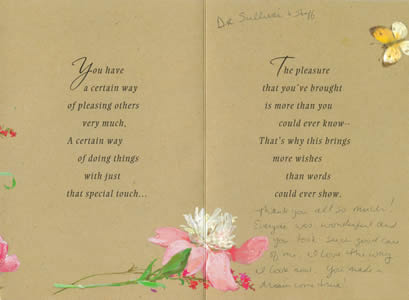 You have
a certain way
of pleasing others
very much,
A certain way
of doing things
with just
that special touch...
Dr Sullivan & Staff
The pleasure
that you've brought
is more than you
could ever know--
That's why this brings
more wishes
than words
could ever show.
Thank you all so much!
Everyone was wonderful and
you took such good care
of me. I love the way
I look now. You made a
dream come true!